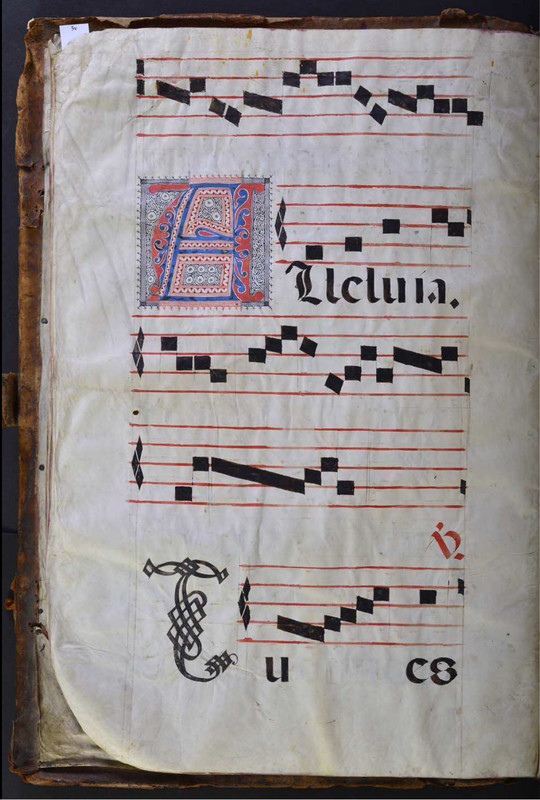 Alleluia.
℣
Tu es